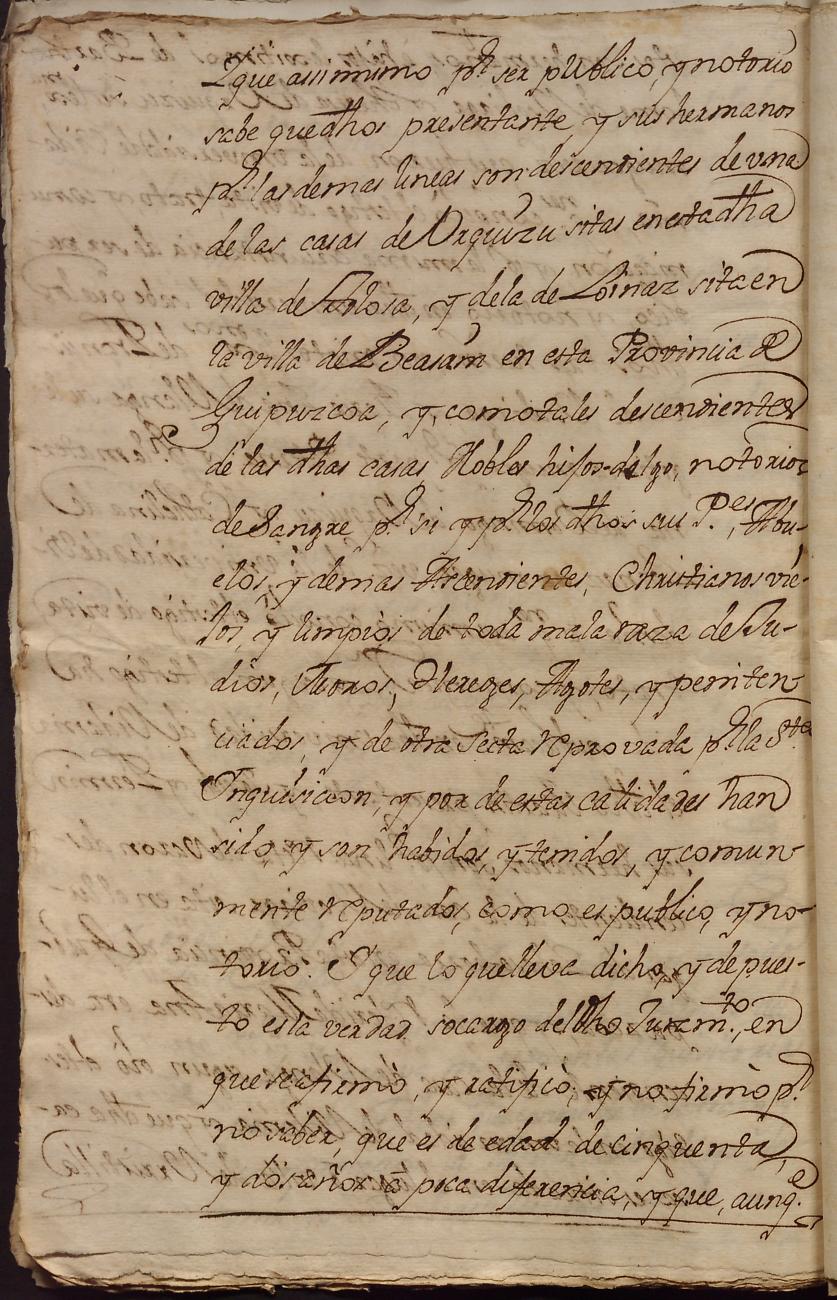 Y que assimismo pr. ser publico, y notorio
sabe que dhos presentante, y sus hermanos
pr. las demas lineas son descendientes de vna
de las casas de Vrquizu sitas en esta dha
villa de Tolosa, y de la de Loinaz sita en
la villa de Beasain en esta Provincia de
Guipuzcoa, y como tales descendientes
de las dhas casas Nobles hijos-dalgo, notorios
de Sangre pr. si y pr. los dhos sus P.es, Abu-
elos, y demas Ascendientes, Christianos vie-
jos, y limpios de toda mala raza de Ju-
dios, Moros, Hereges, Agotes, y peniten
ciados, y de otra Secta reprovada pr. la Sta.
Inquisicion, y por de estas calidades han
sido, y son habidos, y tenidos, y comun-
mente reputados, como es publico, y no-
torio. Y que lo que lleva dicho, y depues-
to es la verdad socargo del dho Juram.to, en
que se afirmó, y ratificó, y no firmó pr.
no saber, que es de edad de cinquenta
y dos años à poca diferencia, y que, aunq.e